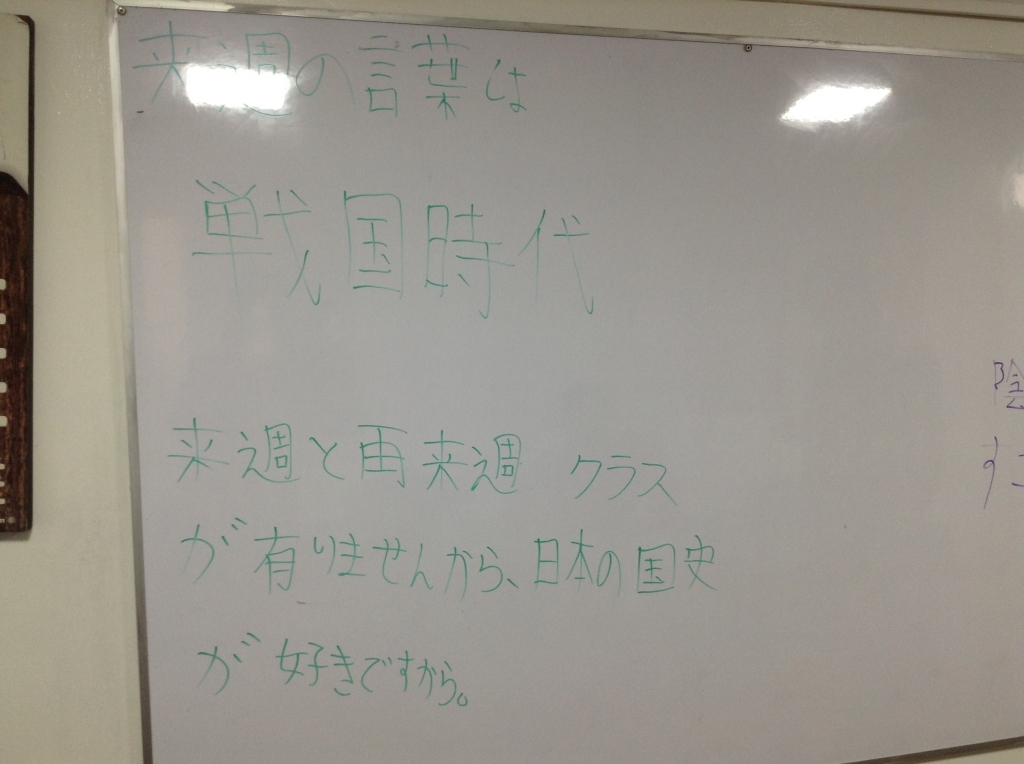 来週の言葉は
戦国時代
来週と再来週 クラス
が有りませんから、日本の国史
が好きですから。
陰
すこ